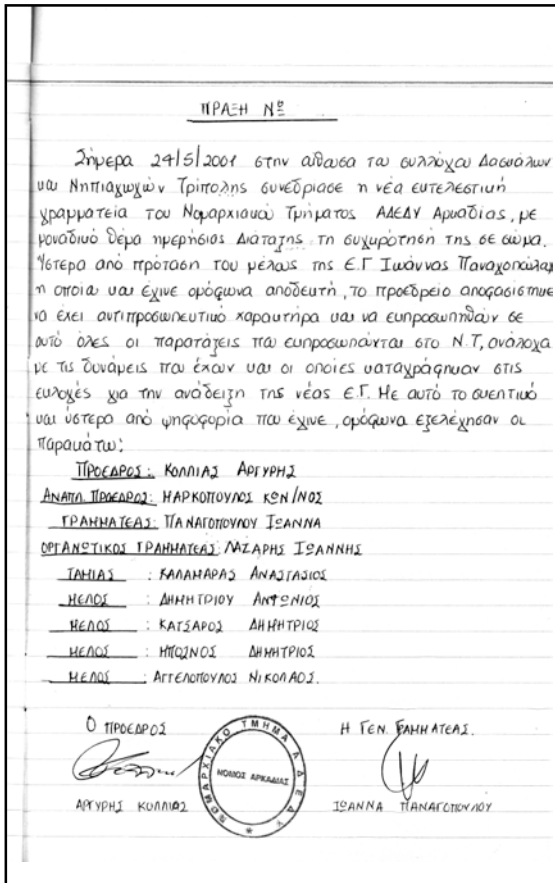 ΠΡΑΞΗ Νο
Σήμερα 24/5/2001 στην αίθουσα του συλλόγου Δασκάλων
και Νηπιαγωγών Τρίπολης συνεδρίασε η νέα εκτελεστική
γραμματεία του Νομαρχιακού Τμήματος ΑΔΕΔΥ Αρκαδίας, με
μοναδικό θέμα ημερήσιας Διάταξης τη συγκρότηση της σε σώμα.
Ύστερα από πρόταση του μέλους της Ε.Γ Ιωάννας Παναγοπούλου
η οποία και έγινε ομόφωνα αποδεκτή, το προεδρείο αποφασίστηκε
να έχει αντιπροσωπευτικό χαρακτήρα και να εκπροσωπηθούν σε
αυτό όλες οι παρατάξεις που εκπροσωπούνται στο Ν.Τ, ανάλογα
με τις δυνάμεις που έχουν και οι οποίες καταγράφηκαν στις
εκλογές για την ανάδειξη της νέας Ε.Γ. Με αυτό το σκεπτικό
και ύστερα από ψηφοφορία που έγινε, ομόφωνα εξελέγησαν οι
παρακάτω:
ΠΡΟΕΔΡΟΣ: ΚΟΛΛΙΑΣ ΑΡΓΥΡΗΣ
ΑΝΑΠΛ. ΠΡΟΕΔΡΟΣ: ΜΑΡΚΟΠΟΥΛΟΣ ΚΩΝ/ΝΟΣ
ΓΡΑΜΜΑΤΕΑΣ: ΠΑΝΑΓΟΠΟΥΛΟΥ ΙΩΑΝΝΑ
ΟΡΓΑΝΩΤΙΚΟΣ ΓΡΑΜΜΑΤΕΑΣ: ΛΑΖΑΡΗΣ ΙΩΑΝΝΗΣ
ΤΑΜΙΑΣ : ΚΑΛΑΜΑΡΑΣ ΑΝΑΣΤΑΣΙΟΣ
ΜΕΛΟΣ : ΔΗΜΗΤΡΙΟΥ ΑΝΤΩΝΙΟΣ
ΜΕΛΟΣ : ΚΑΤΣΑΡΟΣ ΔΗΜΗΤΡΙΟΣ
ΜΕΛΟΣ : ΜΠΟΖΝΟΣ ΔΗΜΗΤΡΙΟΣ
ΜΕΛΟΣ : ΑΓΓΕΛΟΠΟΥΛΟΣ ΝΙΚΟΛΑΟΣ.
Ο ΠΡΟΕΔΡΟΣ
Η ΓΕΝ. ΓΡΑΜΜΑΤΕΑΣ.
ΝΟΜΑΡΧΙΑΚΟ ΤΜΗΜΑ ΑΔΕΔΥ
ΝΟΜΟΣ ΑΡΚΑΔΙΑΣ
ΑΡΓΥΡΗΣ ΚΟΛΛΙΑΣ
ΙΩΑΝΝΑ ΠΑΝΑΓΟΠΟΥΛΟΥ